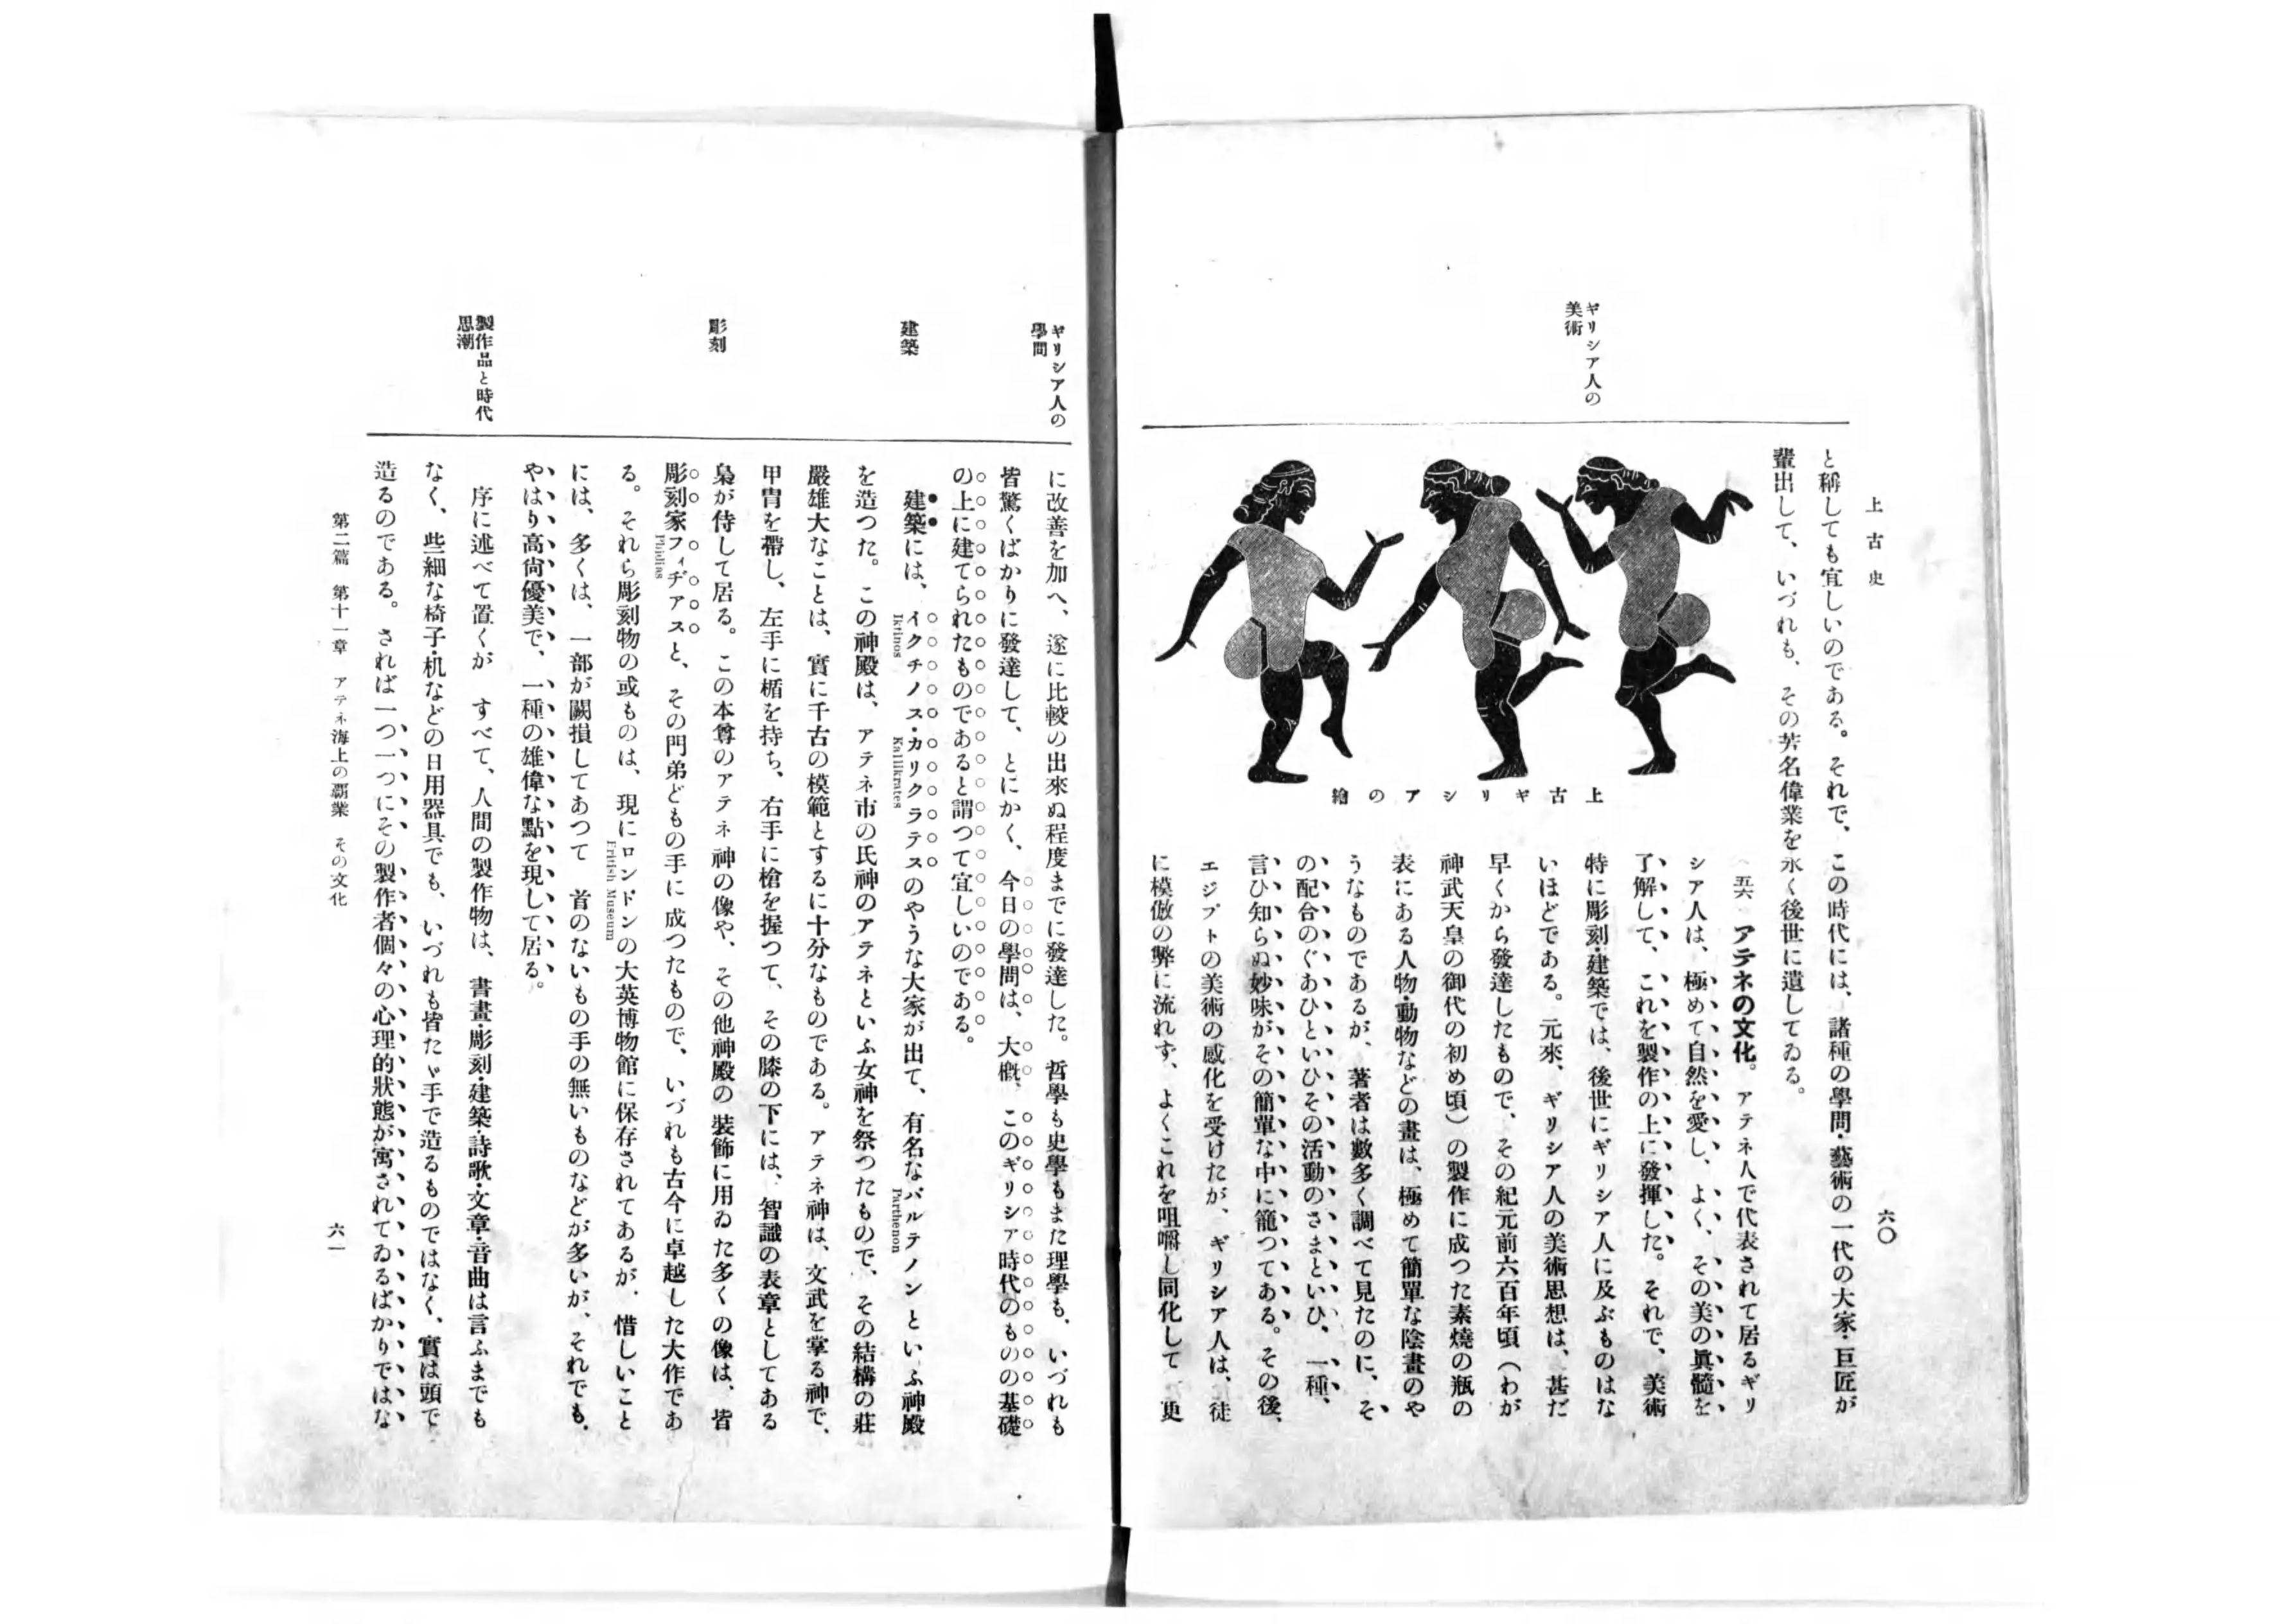 上古史
六〇
ギリシア人の
美術
と稱しても宜しいのである。それで、この時代には、諸種の學問・藝術の一代の大家・巨匠が
輩出して、いづれも、その芳名偉業を永く後世に遺してゐる。
上古ギリシアの繪
五六 アテネの文化。アテネ人で代表されて居るギリ
シア人は、極めて自然を愛し、よく、その美の眞髓を
了解して、これを製作の上に發揮した。それで、美術
特に彫刻・建築では、後世にギリシア人に及ぶものはな
いほどである。元來、ギリシア人の美術思想は、甚だ
早くから發達したもので、その紀元前六百年頃(わが
神武天皇の御代の初め頃)の製作に成つた素燒の瓶の
表にある人物・動物などの畫は、極めて簡單な陰畫のや
うなものであるが、著者は數多く調べて見たのに、そ
の配合のぐあひといひその活動のさまといひ、一種、
言ひ知らぬ妙味がその簡單な中に籠つてある。その後、
エジプトの美術の感化を受けたが、ギリシア人は、徒
に模倣の弊に流れず、よくこれを咀嚼し同化して 更
ギリシア人の
學問
建築
彫刻
製作品と時代
思潮
に改善を加へ、遂に比較の出來ぬ程度までに發達した。哲學も史學もまた理學も、いづれも
皆驚くばかりに發達して、とにかく、今日の學問は、大概、このギリシア時代のものの基礎
の上に建てられたものであると謂つて宜しいのである。
建築には、イクチノス・カリクラテスのやうな大家が出て、有名なパルテノンといふ神殿
Iktinos Kallikrates Parthenon
を造つた。この神殿は、アテネ市の氏神のアテネといふ女神を祭つたもので、その結構の莊
嚴雄大なことは、實に千古の模範とするに十分なものである。アテネ神は、文武を掌る神で、
甲冑を帶し、左手に楯を持ち、右手に槍を握つて、その膝の下には、智識の表章としてある
梟が侍して居る。この本尊のアテネ神の像や、その他神殿の裝飾に用ゐた多くの像は、皆
彫刻家フィヂアスと、その門弟どもの手に成つたもので、いづれも古今に卓越した大作であ
Phidias
る。それら彫刻物の或ものは、現にロンドンの大英博物館に保存されてあるが、惜しいこと
British Museum
には、多くは、一部が闕損してあつて 首のないもの手の無いものなどが多いが、それでも、
やはり高尙優美で、一種の雄偉な點を現して居る。
序に述べて置くが すべて、人間の製作物は、書畫・彫刻・建築・詩歌・文章・音曲は言ふまでも
なく、些細な椅子・机などの日用器具でも、いづれも皆たゞ手で造るものではなく、實は頭で
造るのである。されば一つ一つにその製作者個々の心理的狀態が寓されてゐるばかりではな
第二篇 第十一章 アテネ海上の覇業 その文化
六一